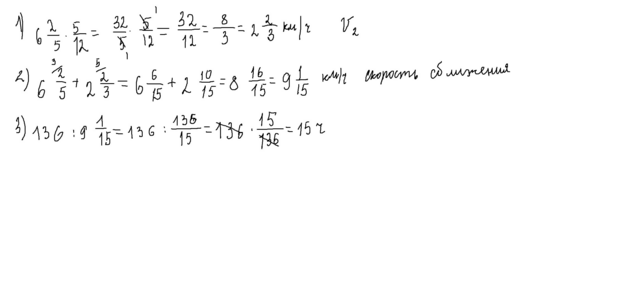 1) 6 2/5 · 5/12 = 32/5 · 5/12 = 32/12 = 8/3 = 2 2/3 км/ч V₂
2) 6 2/5 + 2 2/3 = 6 6/15 + 2 10/15 = 8 16/15 = 9 1/15 км/ч скорость сближения
3) 136 : 9 1/15 = 136 : 136/15 = 136 · 15/136 = 15 ч